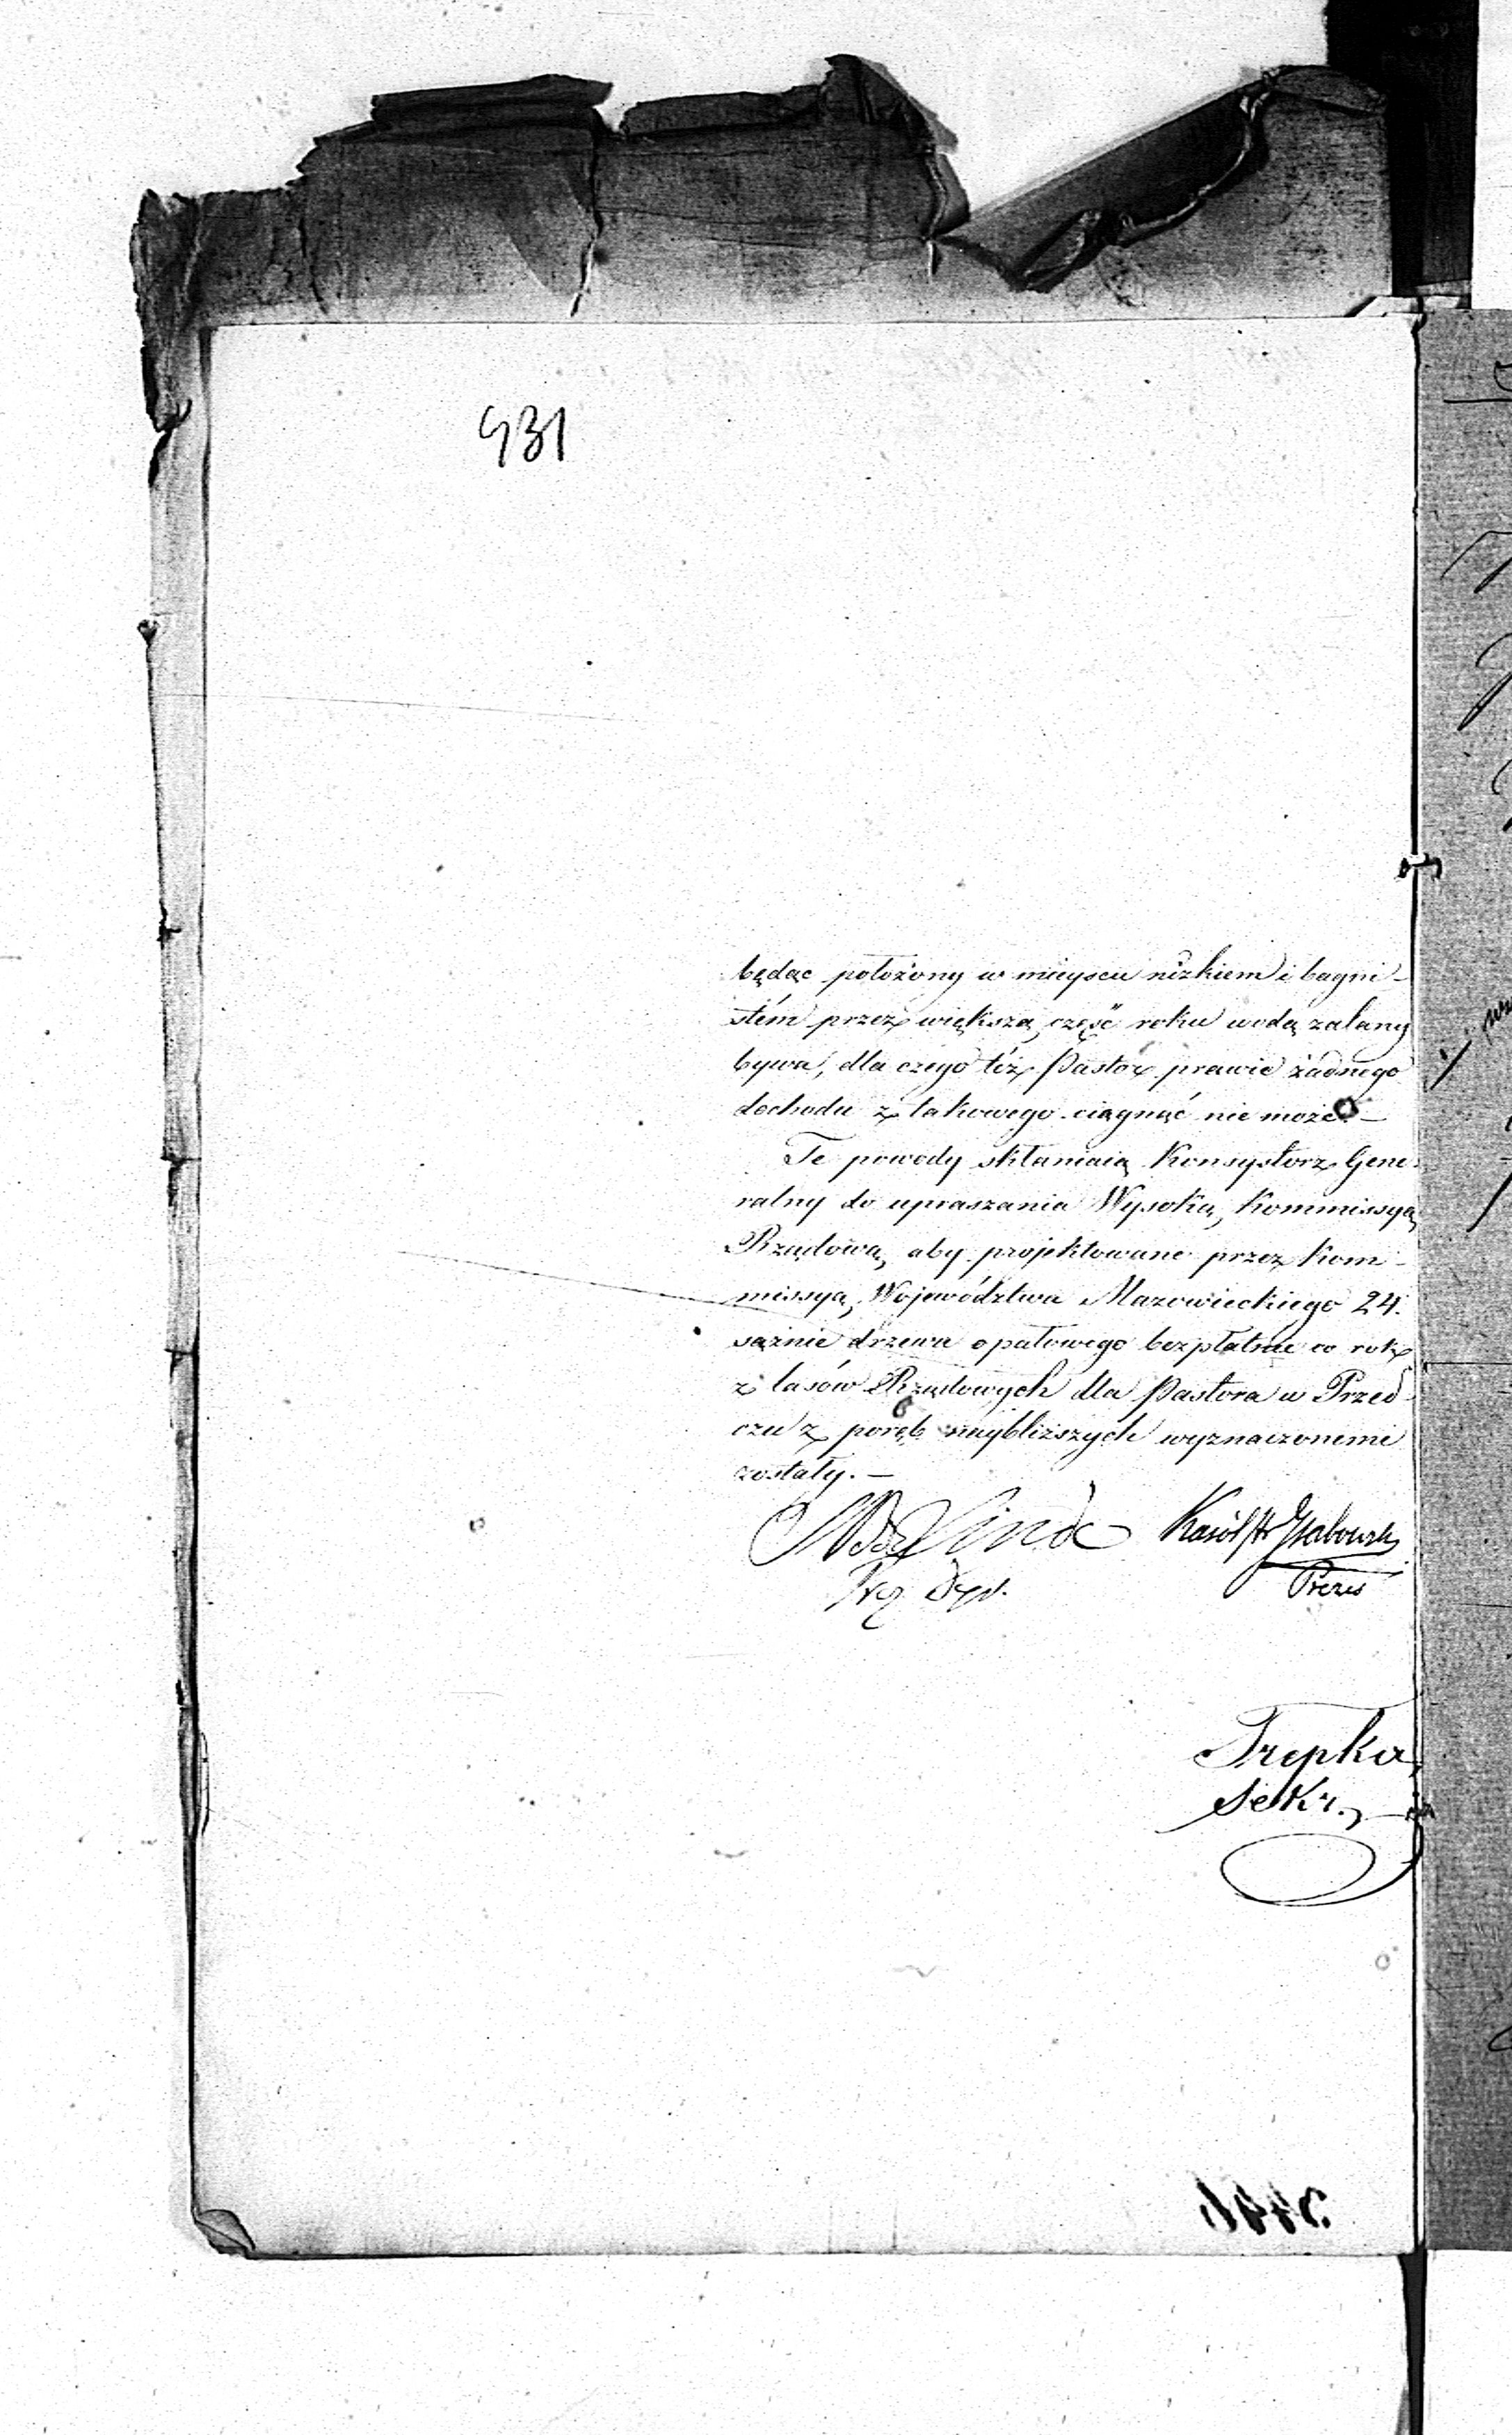 931
będąc położony w mieyscu nizkiem i bagni-
stém przez większą część roku wodą zalany
bywa, dla czego téż Pastor prawie żadnego
dochodu z takowego ciągnąć nie może. –
Te powody skłaniaią Konsystorz Gene-
ralny do upraszania Wysoką Kommissyą
Rządową, aby projektowane przez Kom-
missyą Województwa Mazowieckiego 24.
sążnie drzewa opałowego bezpłatnie co rok
z lasów Rządowych dla Pastora w Przed-
czu z poręb naybliższych wyznaczonemi
zostały. –
Linde Karól
Prezes
Trepka
Sekr.